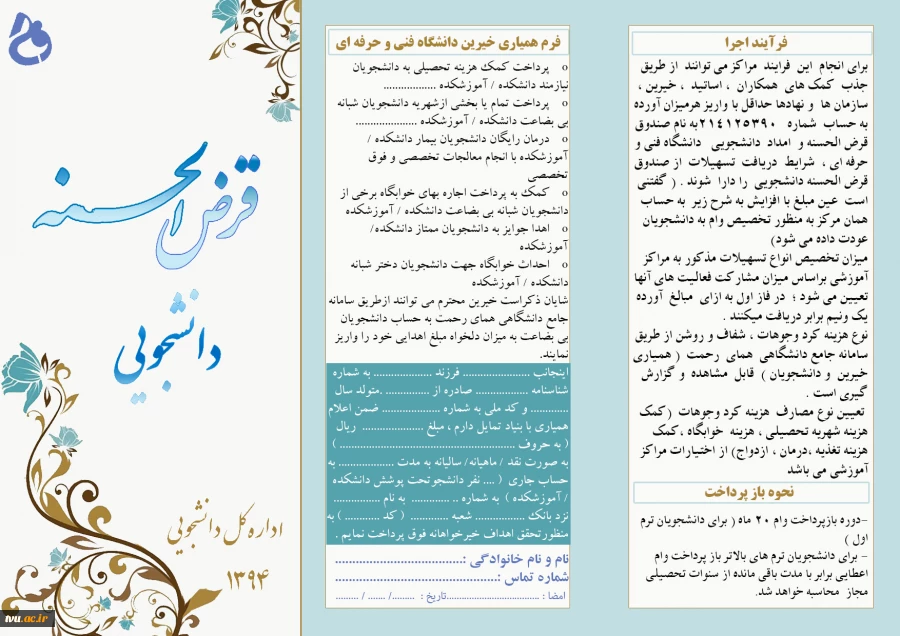 فرآیند اجرا
برای انجام این فرایند مراکز می توانند از طریق
جذب کمک های همکاران ، اساتید ، خیرین ،
سازمان ها و نهادها حداقل با واریز هرمیزان آورده
به حساب شماره ۲۱۴۱۲۵۳۹۰ به نام صندوق
قرض الحسنه و امداد دانشجویی دانشگاه فنی و
حرفه ای ، شرایط دریافت تسهیلات از صندوق
قرض الحسنه دانشجویی را دارا شوند . ( گفتنی
است عین مبلغ با افزایش به شرح زیر به حساب
همان مرکز به منظور تخصیص وام به دانشجویان
عودت داده می شود)
میزان تخصیص انواع تسهیلات مذکور به مراکز
آموزشی براساس میزان مشارکت فعالیت های آنها
تعیین می شود ؛ در فاز اول به ازای مبالغ آورده
یک ونیم برابر دریافت میکنند .
نوع هزینه کرد وجوهات ، شفاف و روشن از طریق
سامانه جامع دانشگاهی همای رحمت ( همیاری
خیرین و دانشجویان ) قابل مشاهده و گزارش
گیری است .
تعیین نوع مصارف هزینه کرد وجوهات (کمک
هزینه شهریه تحصیلی ، هزینه خوابگاه ، کمک
هزینه تغذیه ،درمان ، ازدواج) از اختیارات مراکز
آموزشی می باشد
نحوه باز پرداخت
-دوره بازپرداخت وام ۲۰ ماه ( برای دانشجویان ترم
اول )
- برای دانشجویان ترم های بالاتر باز پرداخت وام
اعطایی برابر با مدت باقی مانده از سنوات تحصیلی
مجاز محاسبه خواهد شد.
فرم همیاری خیرین دانشگاه فنی و حرفه ای
o پرداخت کمک هزینه تحصیلی به دانشجویان
نیازمند دانشکده / آموزشکده ..................
o پرداخت تمام یا بخشی ازشهریه دانشجویان شبانه
بی بضاعت دانشکده / آموزشکده .....................
o درمان رایگان دانشجویان بیمار دانشکده /
آموزشکده با انجام معالجات تخصصی و فوق
تخصصی
o کمک به پرداخت اجاره بهای خوابگاه برخی از
دانشجویان شبانه بی بضاعت دانشکده / آموزشکده
o اهدا جوایز به دانشجویان ممتاز دانشکده/
آموزشکده
o احداث خوابگاه جهت دانشجویان دختر شبانه
دانشکده / آموزشکده
شایان ذکراست خیرین محترم می توانند ازطریق سامانه
جامع دانشگاهی همای رحمت به حساب دانشجویان
بی بضاعت به میزان دلخواه مبلغ اهدایی خود را واریز
نمایند.
اینجانب .................... فرزند ................. به شماره
شناسنامه ................ صادره از ............. .متولد سال
............ و کد ملی به شماره .................. ضمن اعلام
همیاری با بنیاد تمایل دارم ، مبلغ ................... ریال
( به حروف ..................................................... )
به صورت نقد / ماهیانه/ سالیانه به مدت ................ به
حساب جاری ( .... نفر دانشجوتحت پوشش دانشکده
/ آموزشکده ) به شماره .. ............ به نام ...............
نزد بانک ................ شعبه ............ ( کد ........... ) به
منظورتحقق اهداف خیرخواهانه فوق پرداخت نمایم .
نام و نام خانوادگی :..................................
شماره تماس :...........................................
امضا : ..................................تاریخ : ........./ ...... / .........
قرض الحسنه
دانشجویی
اداره کل دانشجویی
۱۳۹۴
tvu.ac.ir